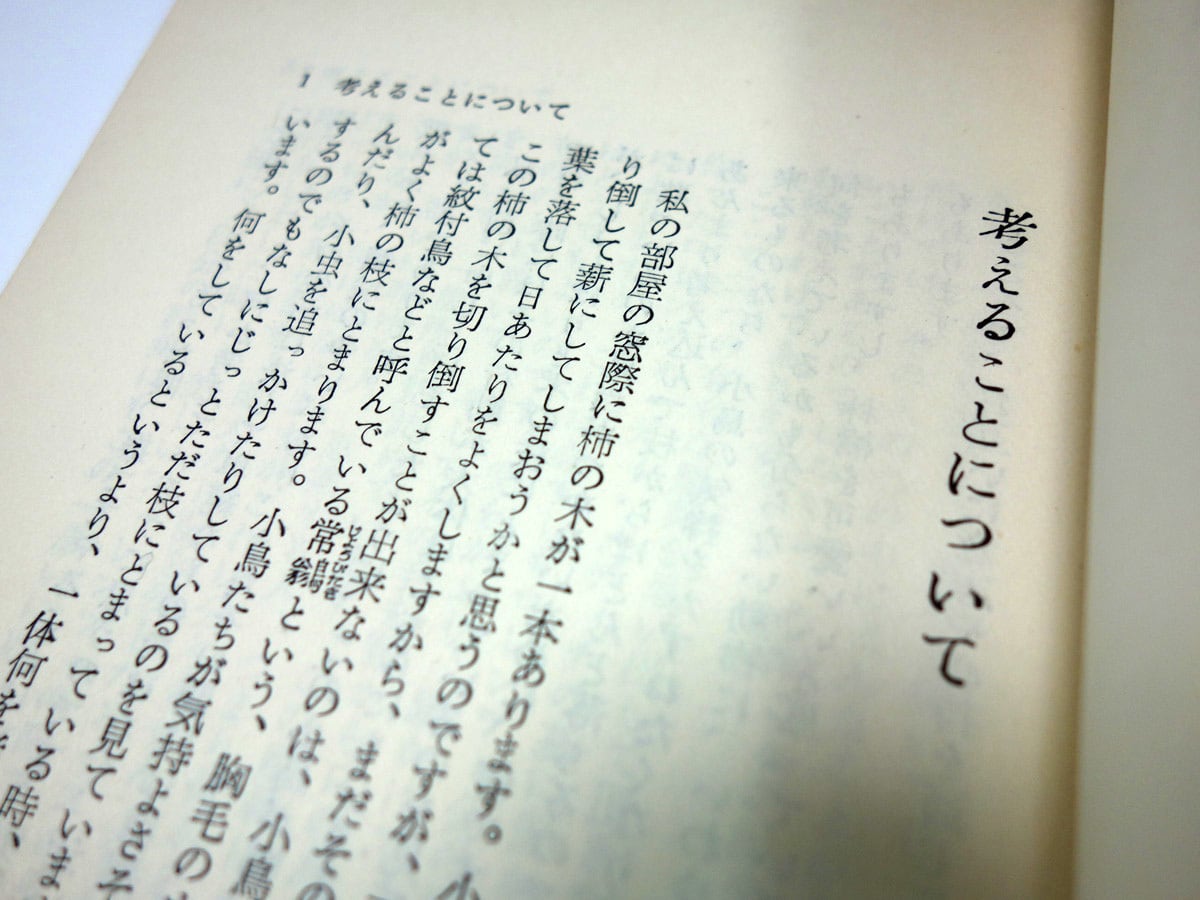 1 考えることについて
考えることについて
私の部屋の窓際に柿の木が一本あります。小
り倒して薪にしてしまおうかと思うのですが、
葉を落して日あたりをよくしますから、まだその
この柿の木を切り倒すことが出来ないのは、小鳥
ては紋付鳥などと呼んでいる常鶲という、胸毛の
じょうびたき
がよく柿の枝にとまります。小鳥たちが気持よさそ
んだり、小虫を追っかけたりしているのを見ていま
するのでもなしにじっとただ枝にとまっている時、
います。何をしているというより、一体何を